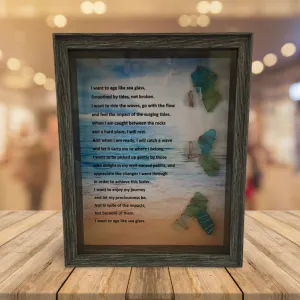 I want to age like sea glass.
Smoothed by tides, not broken.
I want to ride the waves, go with the flow
and feel the impact of the surging tides.
When I am caught between the rocks
and a hard place, I will rest.
And when I am ready, I will catch a wave
and let it carry me to where I belong.
I want to be picked up gently by those
who delight in my well earned patina, and
appreciate the changes I went through
in order to achieve this luster.
I want to enjoy my journey
and let my preciousness be,
Not in spite of the impacts,
but because of them.
I want to age like sea glass.